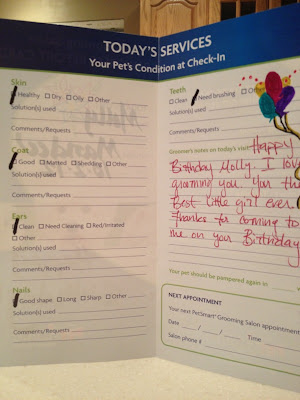 TODAY'S SERVICES
Your Pet's Condition at Check-In
Skin
Healthy □ Dry □ Oily □ Other
Solution(s) used
Comments/Requests
Coat
Good □ Matted □ Shedding □ Other
Solution(s) used
Comments/Requests
Ears
Clean □ Need Cleaning □ Red/Irritated
□ Other
Solution(s) used
Comments/Requests
Nails
Good shape □ Long □ Sharp □ Other
Solution(s) used
Comments/Requests
Teeth
□ Clean Need brushing □ Other
Solution(s) used
Comments/Requests
Groomer's notes on today's visit
Happy
Birthday Molly. I love
grooming you. Your the
Best little girl ever.
Thanks for coming to
me on your Birthday
Your pet should be pampered again in
NEXT APPOINTMENT
Your next PetSmart Grooming Salon appointment
Date / / Time
Salon phone #